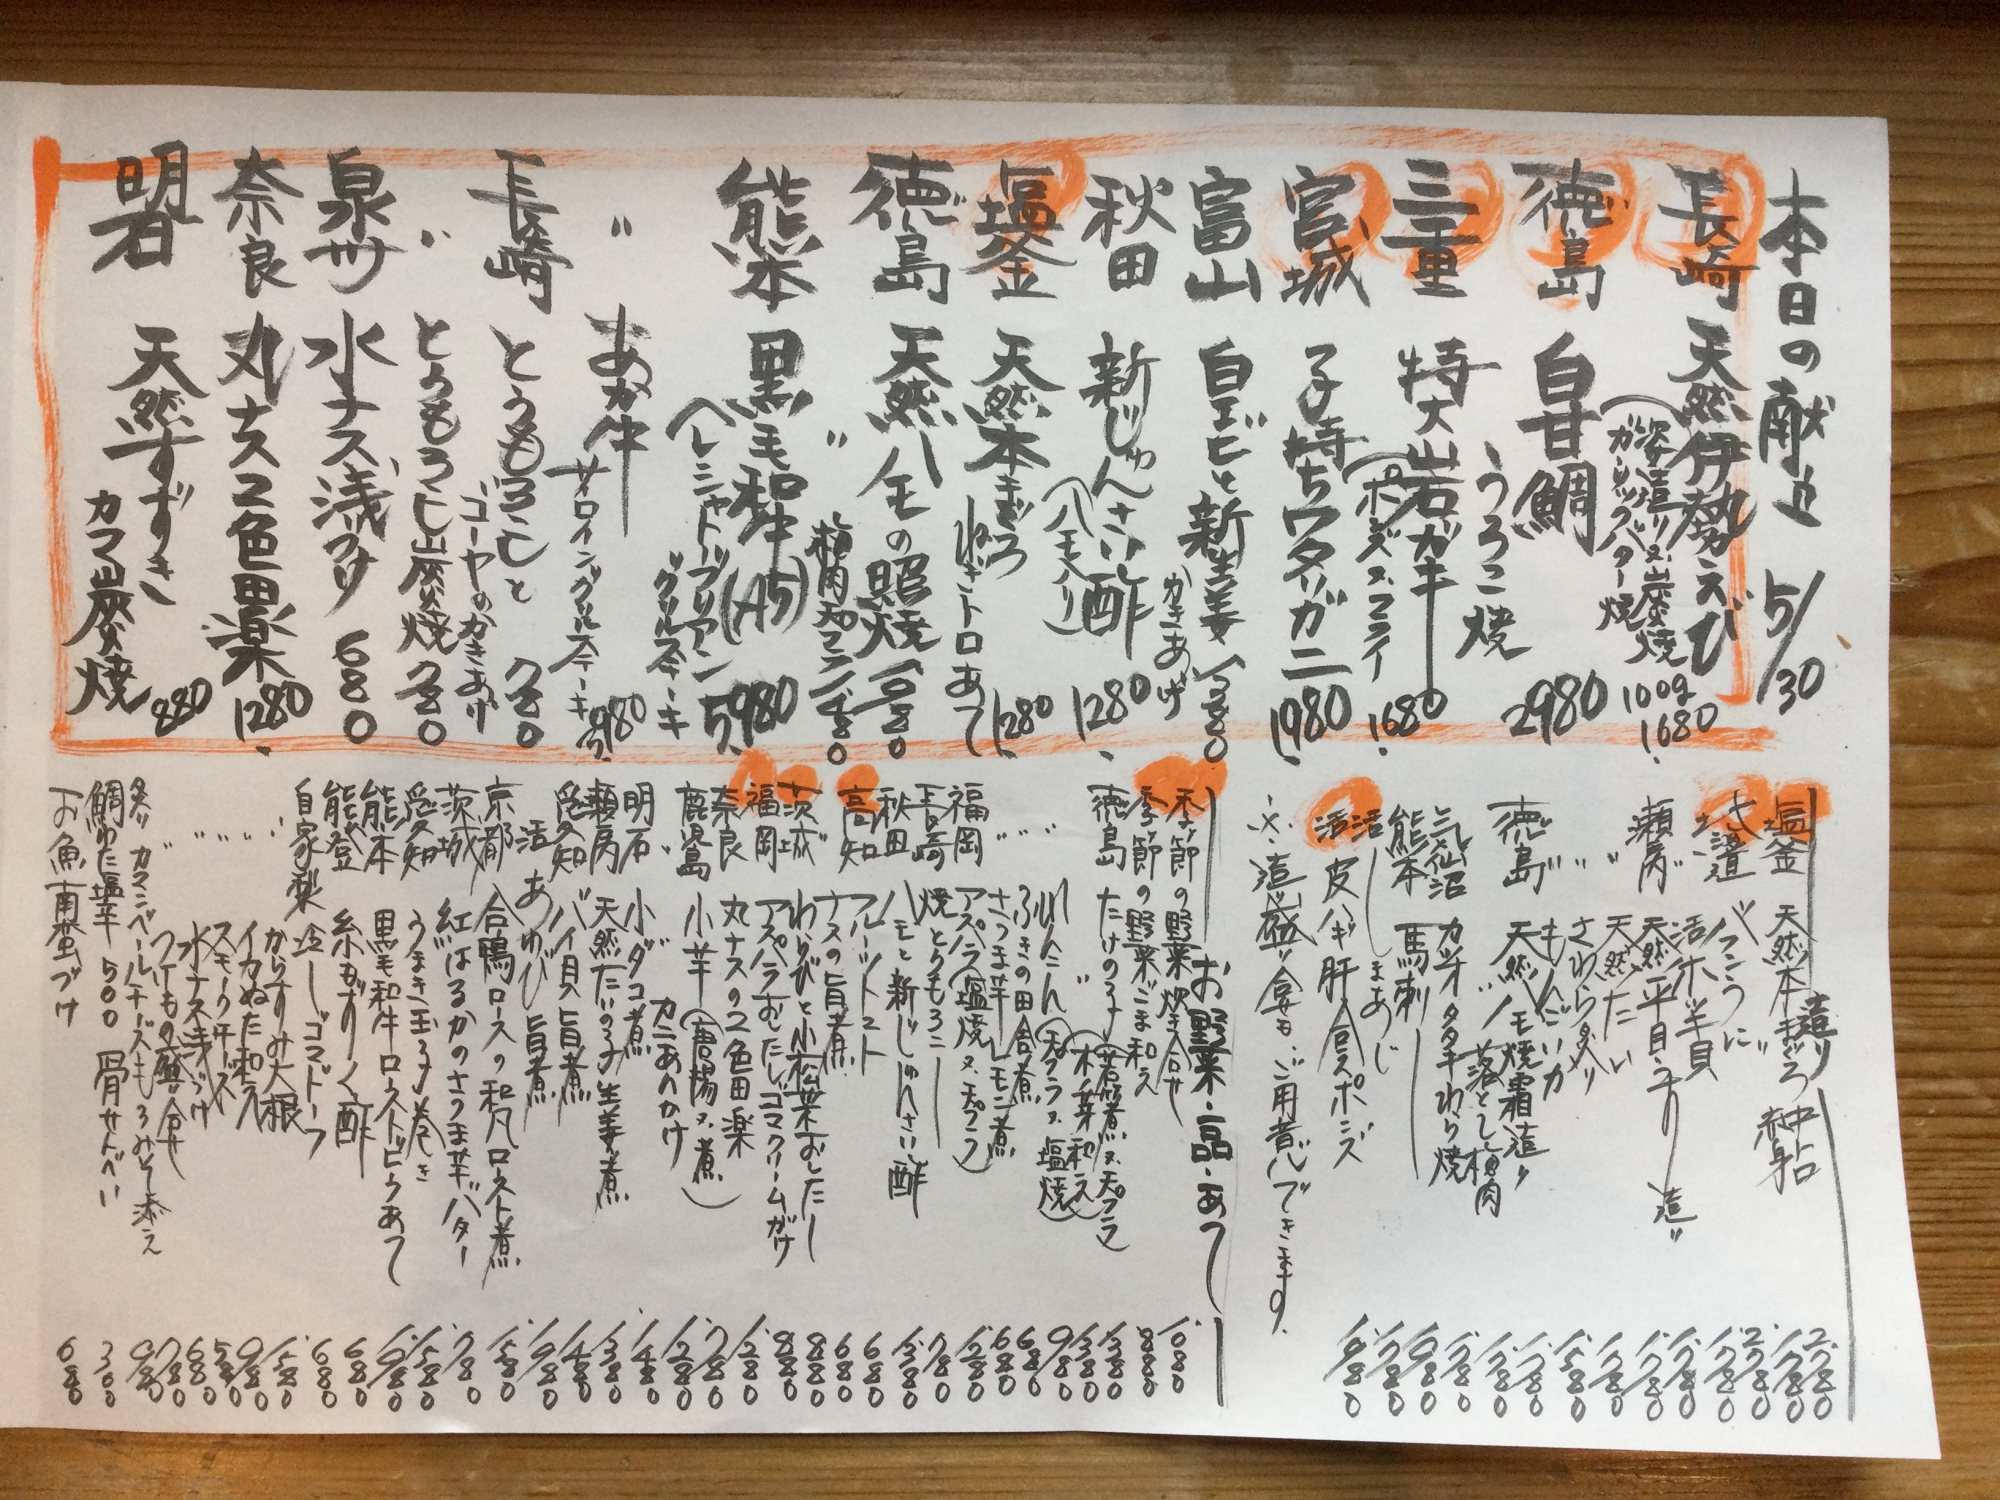 本日の献立 5/30
長崎 天然伊勢えび
(姿造り又は炭焼 100g 1680
ガーリックバター焼
徳島 白甘鯛 2980
うろこ焼
三重 特大岩ガキ 1680
(ポンズ又フライ
宮城 子持ちワタリガニ 1980
富山 白エビと新生姜 1380
かきあげ
秋田 新じゅんさい酢 1280
(ハモ入り)
塩釜 天然本まぐろ 1280
ねぎトロあて
徳島 天然ハモの照焼 1680
〃
熊本 黒毛和牛(A5) 5,980
ヘレシャトーブリアン
グリルステーキ
〃 あか牛
サイロイングリルステーキ 980
長崎 とうもろこしと 780
ゴーヤのかきあげ
〃 とうもろこし炭焼 780
泉州 水ナス浅づけ 680
奈良 丸ナス2色田楽 1280
明石 天然すずき
カマ炭焼 880
造り
塩釜 天然本まぐろ 中トロ 2780
赤身 1780
バフンうに
活ホッキ貝
瀬戸内 天然平目うすり造り
〃 天然たい
〃 さわらタタキ
〃 もんごいか
徳島 天然ハモ焼霜造り
〃 落とし梅肉
気仙沼 カツオタタキわら焼
熊本 馬刺し
活〆しまあじ
活皮ハギ肝合えポンズ
※造り盛り合せもご用意できます。
お野菜・一品・あて
季節の野菜炊き合せ 1080
季節の野菜ごま和え 880
徳島 たけのこ(若竹煮又天プラ) 1380
〃 (木ノ芽和え) 1380
ふきの田舎煮 680
さつま芋レモン煮 680
福岡 アスパラ(塩焼又天プラ)
長崎 焼とうもろこし 780
秋田 ハモと新じゅんさい酢 1380
高知 フルーツトマト 680
ナスの旨煮 680
茨城 わらびと小松菜おひたし 880
福岡 アスパラおひたしゴマクリームがけ 880
奈良 丸ナスの2色田楽 1280
鹿児島 小芋(唐揚又煮)
カニあんかけ 1280
明石 小ダコ煮 1480
瀬戸内 天然たいの子生姜煮 1380
愛知 バイ貝旨煮 1480
活あわび旨煮 1980
京都 合鴨ロースの和風ロースト煮 1580
茨城 紅はるかのさつま芋バター 780
愛知 うまき玉子巻き 1580
熊本 黒毛和牛ローストビーフあて 1980
能登 糸もずく酢 680
自家製 冷しゴマドーフ 680
〃 からすみ大根 1580
〃 イカぬた和え 980
〃 スモークチーズ 580
〃 水ナス浅づけ 680
つけもの盛り合せ 780
炙りカマンベールチーズもろみそ添え 980
鯛ゆた塩辛 500 骨せんべい 300
お魚南蛮づけ 680